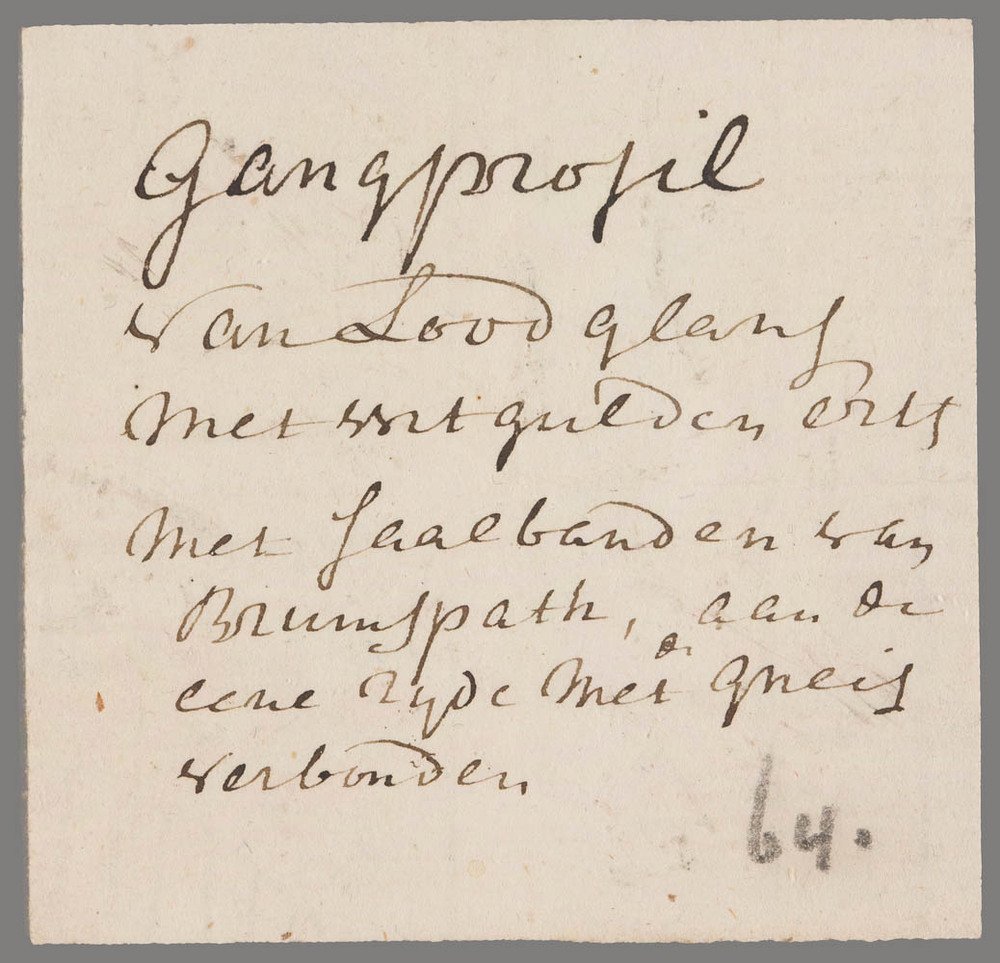 Gangprofil
van Loodglans
Met witgulden erts
Met Saalbanden van
Bruinspath, aan de
eene zyde Met de Gneis
verbonden
64.